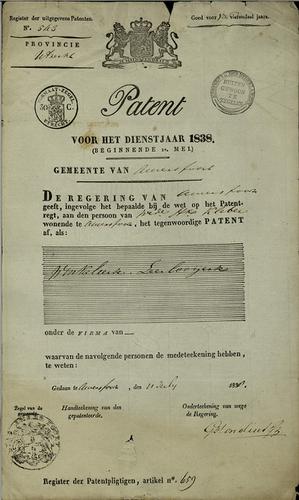 Register der uitgegeven Patenten.
N°. 545
Goed voor vierendeel jaars.
PROVINCIE
Utrecht
50 C.
UTRECHT
BUITEN
GEWOON
TE
ZEGELEN
Patent
VOOR HET DIENSTJAAR 1838.
(BEGINNENDE 1°. MEI.)
GEMEENTE VAN Amersfoort
DE REGERING VAN Amersfoort
geeft, ingevolge het bepaalde bij de wet op het Patent-
regt, aan den persoon van
wonende te Amersfoort, het tegenwoordige PATENT
af, als:
Winkelierster
onder de FIRMA van
waarvan de navolgende personen de medeteekening hebben,
te weten:
Gedaan te Amersfoort, den 11 July 1838.
Zegel van de
Regering.
Handteekening van den
gepatenteerde.
Onderteekening van wege
de Regering.
Register der Patentpligtigen, artikel n°. 659